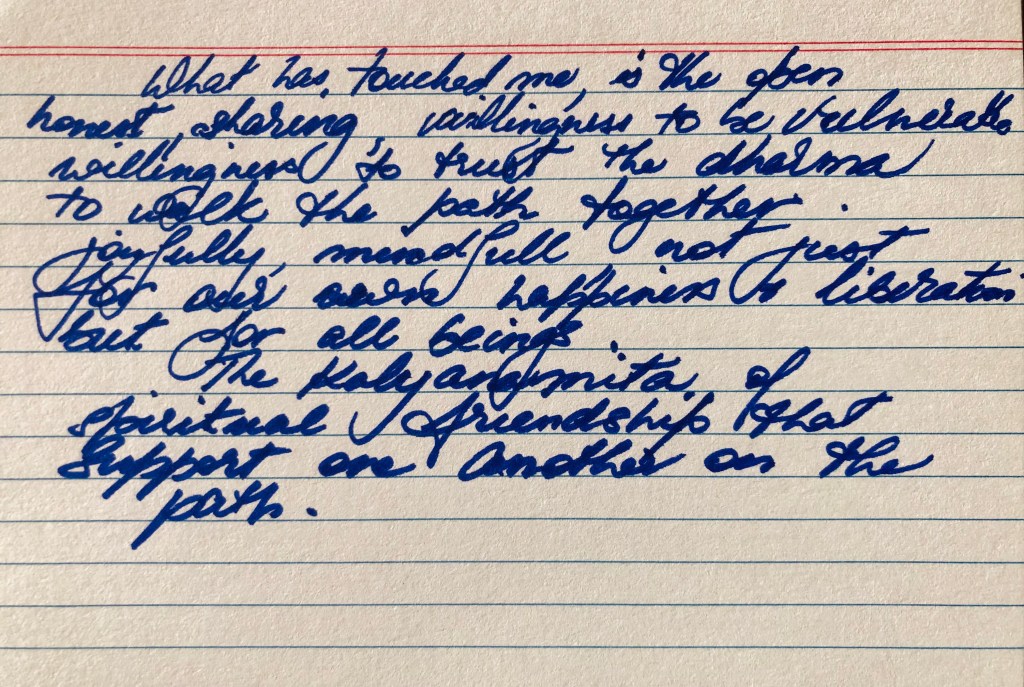 What has, touched me, is the open
honest, sharing, willingness to be vulnerable
willingness to trust the dharma
to walk the path together.
joyfully, mindfull not just
for our own happiness & liberation
but for all beings.
The Kalyanamita of
spiritual friendship that
support one another on the
path.